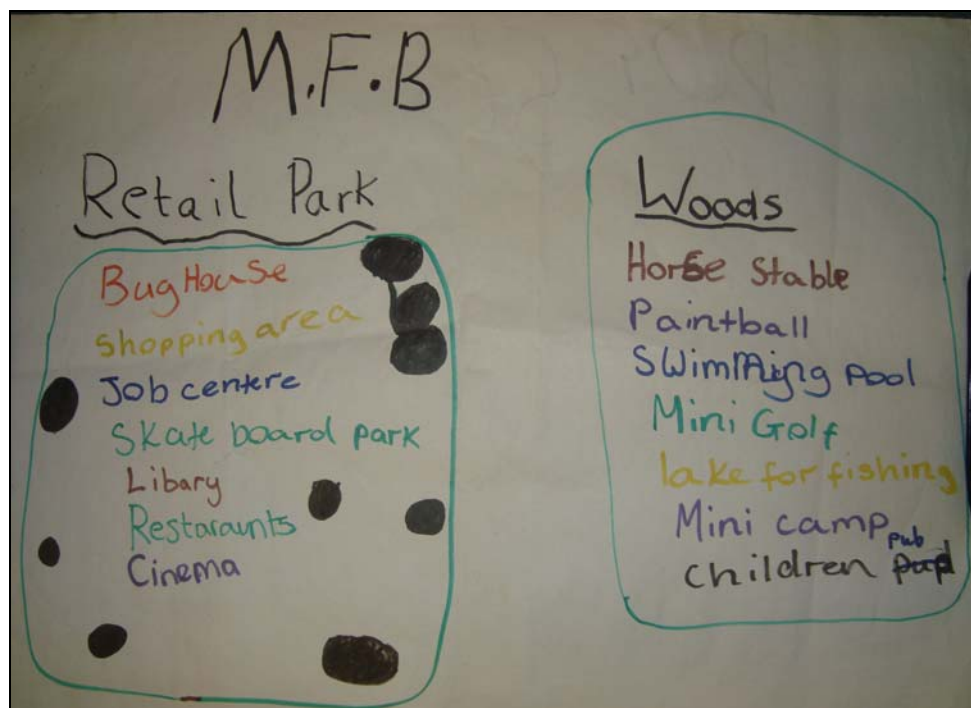 M.F.B
Retail Park
Bug House
shopping area
Job centere
Skate board park
Libary
Restaraunts
Cinema
Woods
Horse Stable
Paintball
Swimming pool
Mini Golf
lake for fishing
Mini camp
children pub